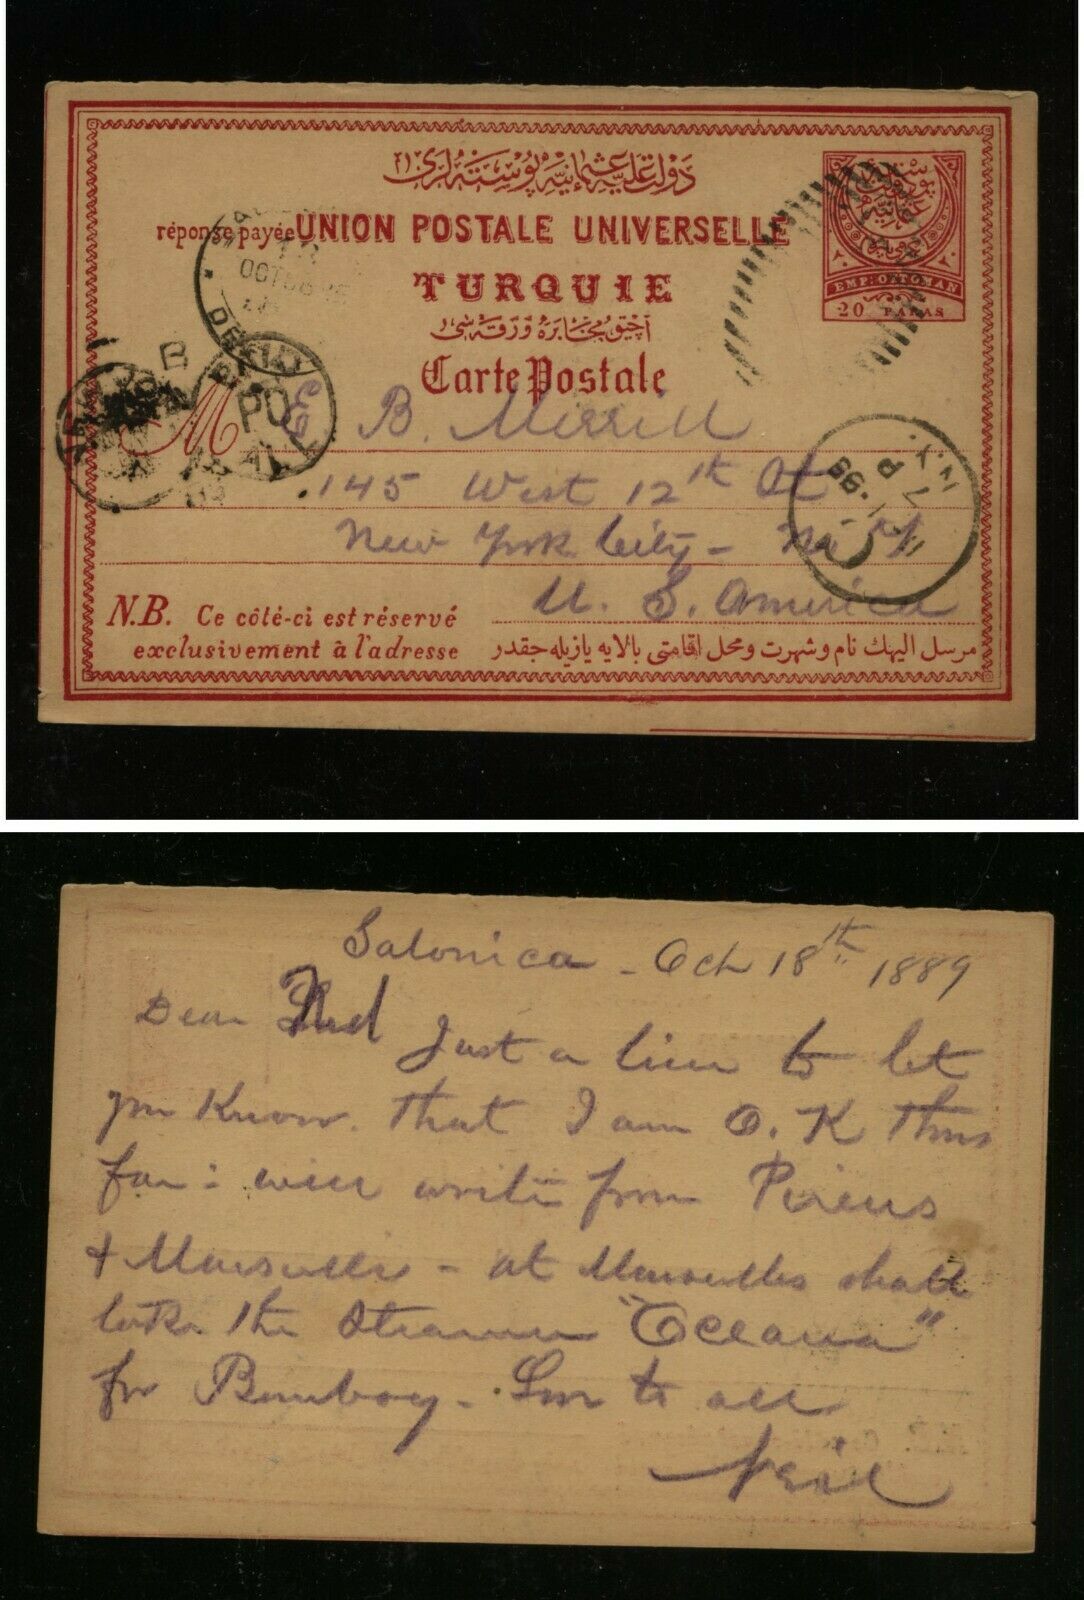 دولت علیۀ عثمانیه پوسته لری
réponse payée UNION POSTALE UNIVERSELLE
TURQUIE
Carte Postale
EMP: OTTOMAN
20 PARAS
M
E B. Merrill
145 West 12th St
New York City - N. Y
U. S. America
N.B. Ce côté-ci est réservé
exclusivement à l'adresse
مرسل الیهك نام و شهرت و محل اقامتی بالایه یازیله جقدر
OCT
PAID
ALL
N.Y.
7 P
Salonica - Oct 18th 1889
Dear
Just a line to let
you Know. that I am O. K thus
far: will write from Pireus
& Marseilles - at Marseilles shall
take the steamer "Oceana"
for Bombay - Love to all
Neil